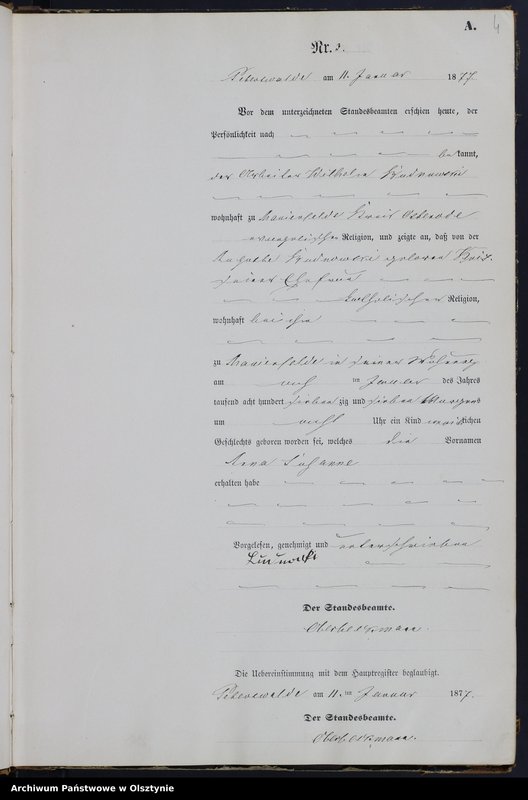 A.
4
Nr. 3.
Peterswalde am 11 Januar 1877.
Vor dem unterzeichneten Standesbeamten erschien heute, der
Persönlichkeit nach
bekannt,
der Arbeiter Wilhelm
wohnhaft zu Marienfelde Kreis Osterode
evangelischer Religion, und zeigte an, daß von der
geborene
seiner Ehefrau
katholischer Religion,
wohnhaft bei ihm
zu Marienfelde in seiner Wohnung
am ten Januar des Jahres
tausend acht hundert sieben zig und sieben Morgens
um acht Uhr ein Kind weiblichen
Geschlechts geboren worden sei, welches die Vornamen
Anna Johanne
erhalten habe
Vorgelesen, genehmigt und unterschrieben
Der Standesbeamte.
Die Uebereinstimmung mit dem Hauptregister beglaubigt.
Peterswalde am 11. ten Januar 1877.
Der Standesbeamte.
Archiwum Państwowe w Olsztynie